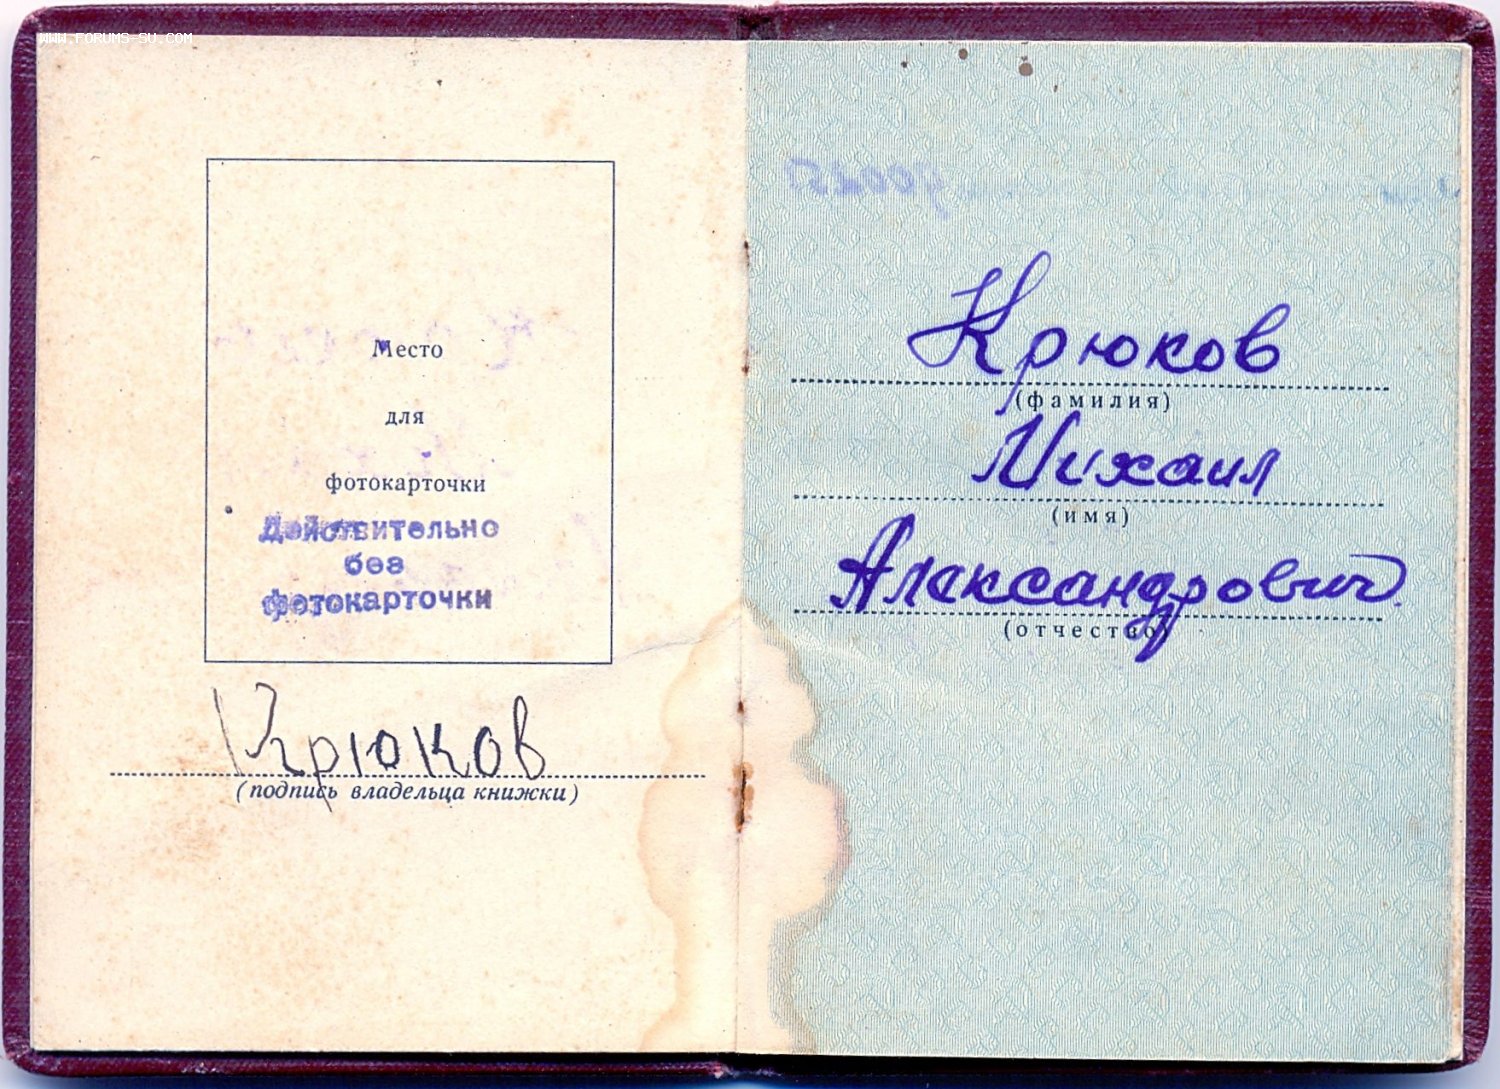 WWW.FORUMS-SU.COM
Место
для
фотокарточки
Действительно
без
фотокарточки
Крюков
(подпись владельца книжки)
Крюков
(фамилия)
Михаил
(имя)
Александрович
(отчество)